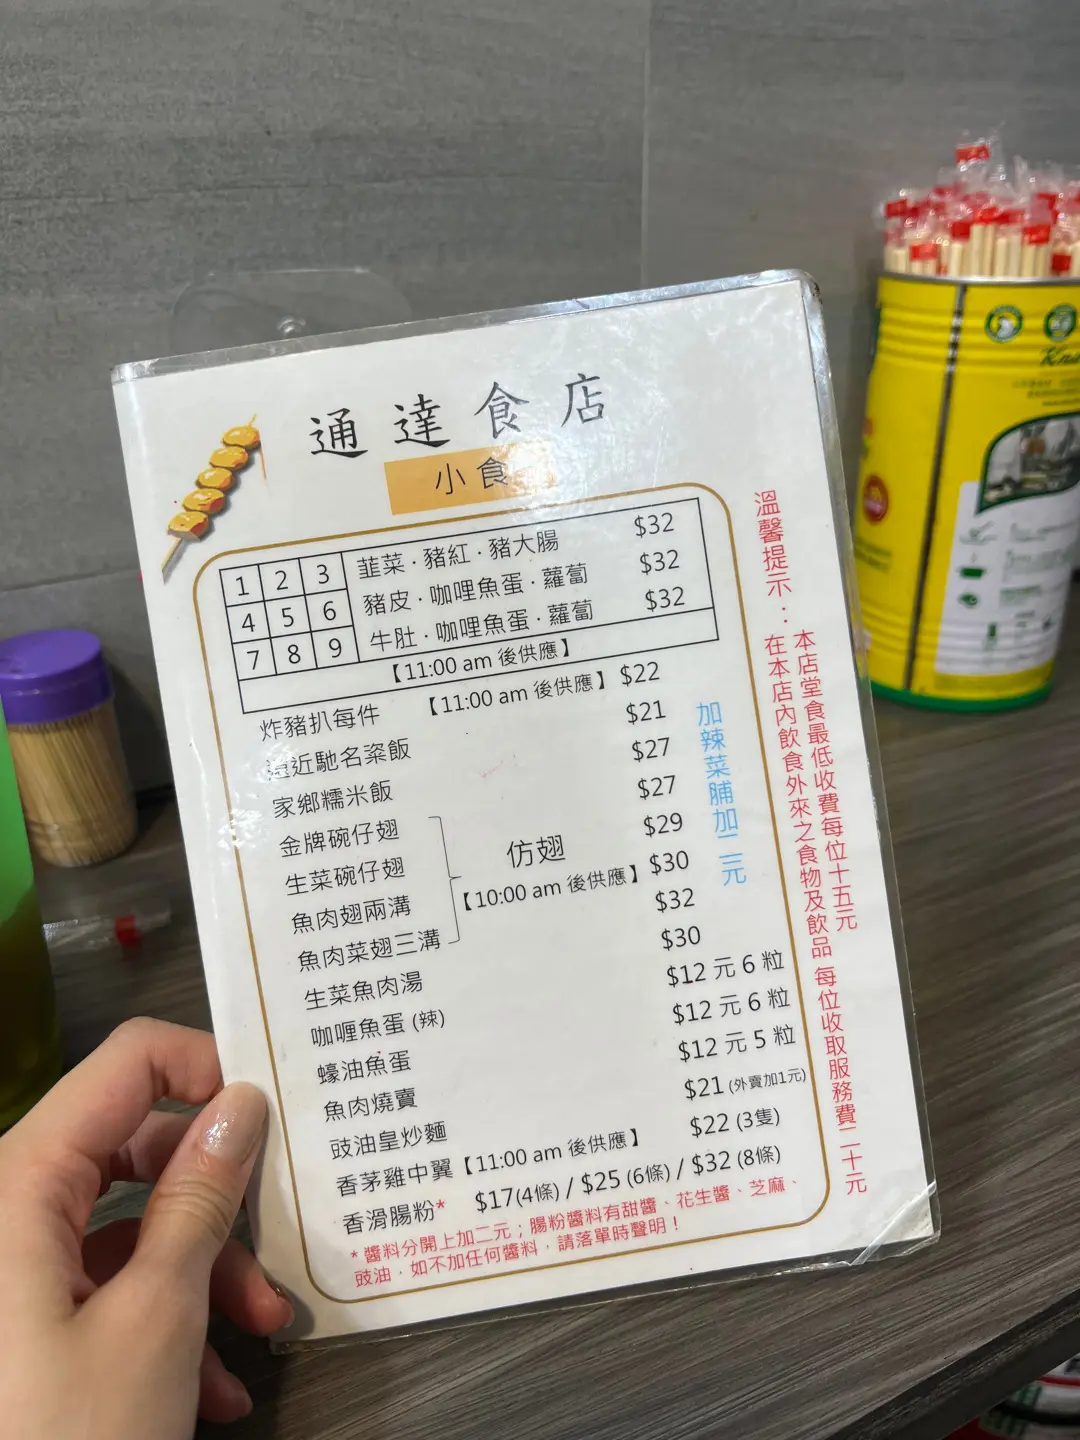 通達食店
小食
1 2 3 韮菜．豬紅．豬大腸 $32
4 5 6 豬皮．咖喱魚蛋．蘿蔔 $32
7 8 9 牛肚．咖喱魚蛋．蘿蔔 $32
【11:00 am 後供應】
炸豬扒每件 【11:00 am 後供應】 $22
遠近馳名粢飯 $21
家鄉糯米飯 $27
金牌碗仔翅 $27
生菜碗仔翅 $29
魚肉翅兩溝 $30
魚肉菜翅三溝 $32
仿翅
【10:00 am 後供應】
生菜魚肉湯 $30
咖喱魚蛋 (辣) $12 元 6 粒
蠔油魚蛋 $12 元 6 粒
魚肉燒賣 $12 元 5 粒
豉油皇炒麵 $21 (外賣加1元)
香茅雞中翼【11:00 am 後供應】 $22 (3隻)
香滑腸粉* $17(4條) / $25 (6條) / $32 (8條)
* 醬料分開上加二元；腸粉醬料有甜醬、花生醬、芝麻、
豉油，如不加任何醬料，請落單時聲明！
加辣菜脯加二元
溫馨提示：
本店堂食最低收費每位十五元
在本店內飲食外來之食物及飲品 每位收取服務費二十元